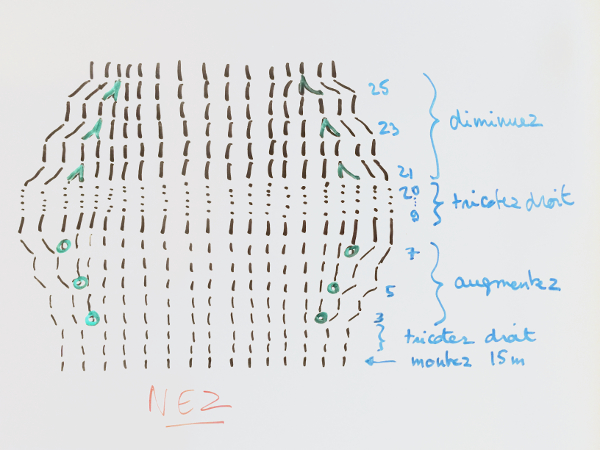 25
diminuez
23
21
20
tricotez droit
8
7
augmentez
5
3
tricotez droit
← montez 15m
NEZ